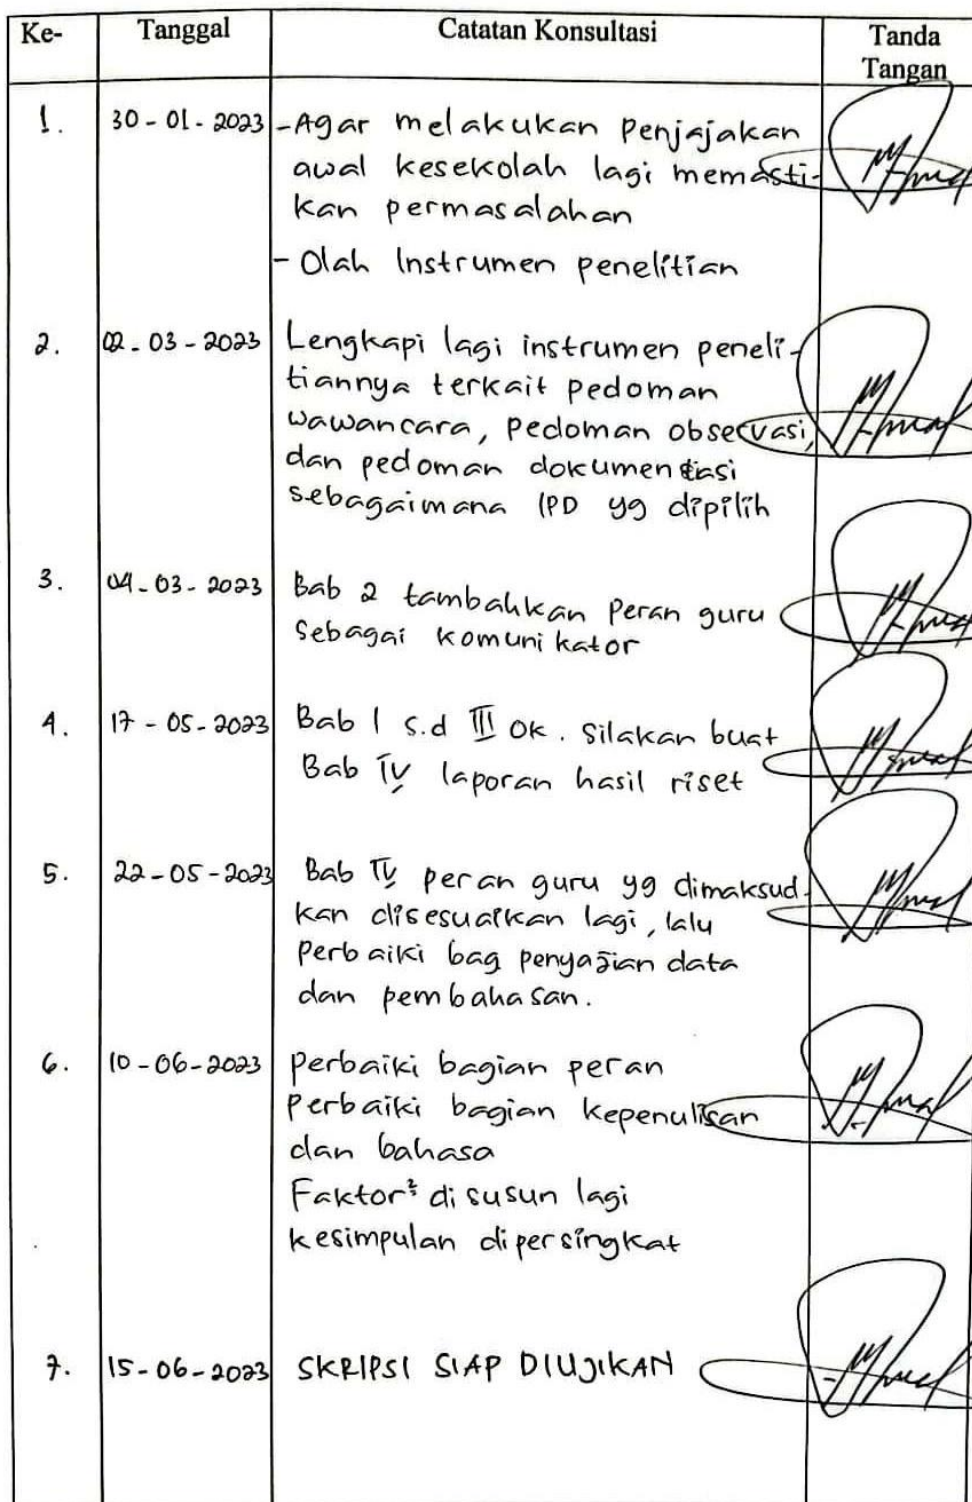 Ke- Tanggal Catatan Konsultasi Tanda
Tangan
1. 30-01-2023 -Agar melakukan Penjajakan
awal kesekolah lagi memasti-
kan permasalahan
- Olah Instrumen penelitian
2. 02-03-2023 Lengkapi lagi instrumen peneli-
tiannya terkait pedoman
wawancara, pedoman observasi,
dan pedoman dokumentasi
sebagaimana IPD yg dipilih
3. 04-03-2023 Bab 2 tambahkan Peran guru
sebagai komunikator
4. 17-05-2023 Bab I s.d III Ok. Silakan buat
Bab IV laporan hasil riset
5. 22-05-2023 Bab IV peran guru yg dimaksud-
kan disesuaikan lagi, lalu
Perbaiki bag penyajian data
dan pembahasan.
6. 10-06-2023 Perbaiki bagian peran
Perbaiki bagian kepenulisan
dan bahasa
Faktor² disusun lagi
kesimpulan dipersingkat
7. 15-06-2023 SKRIPSI SIAP DIUJIKAN